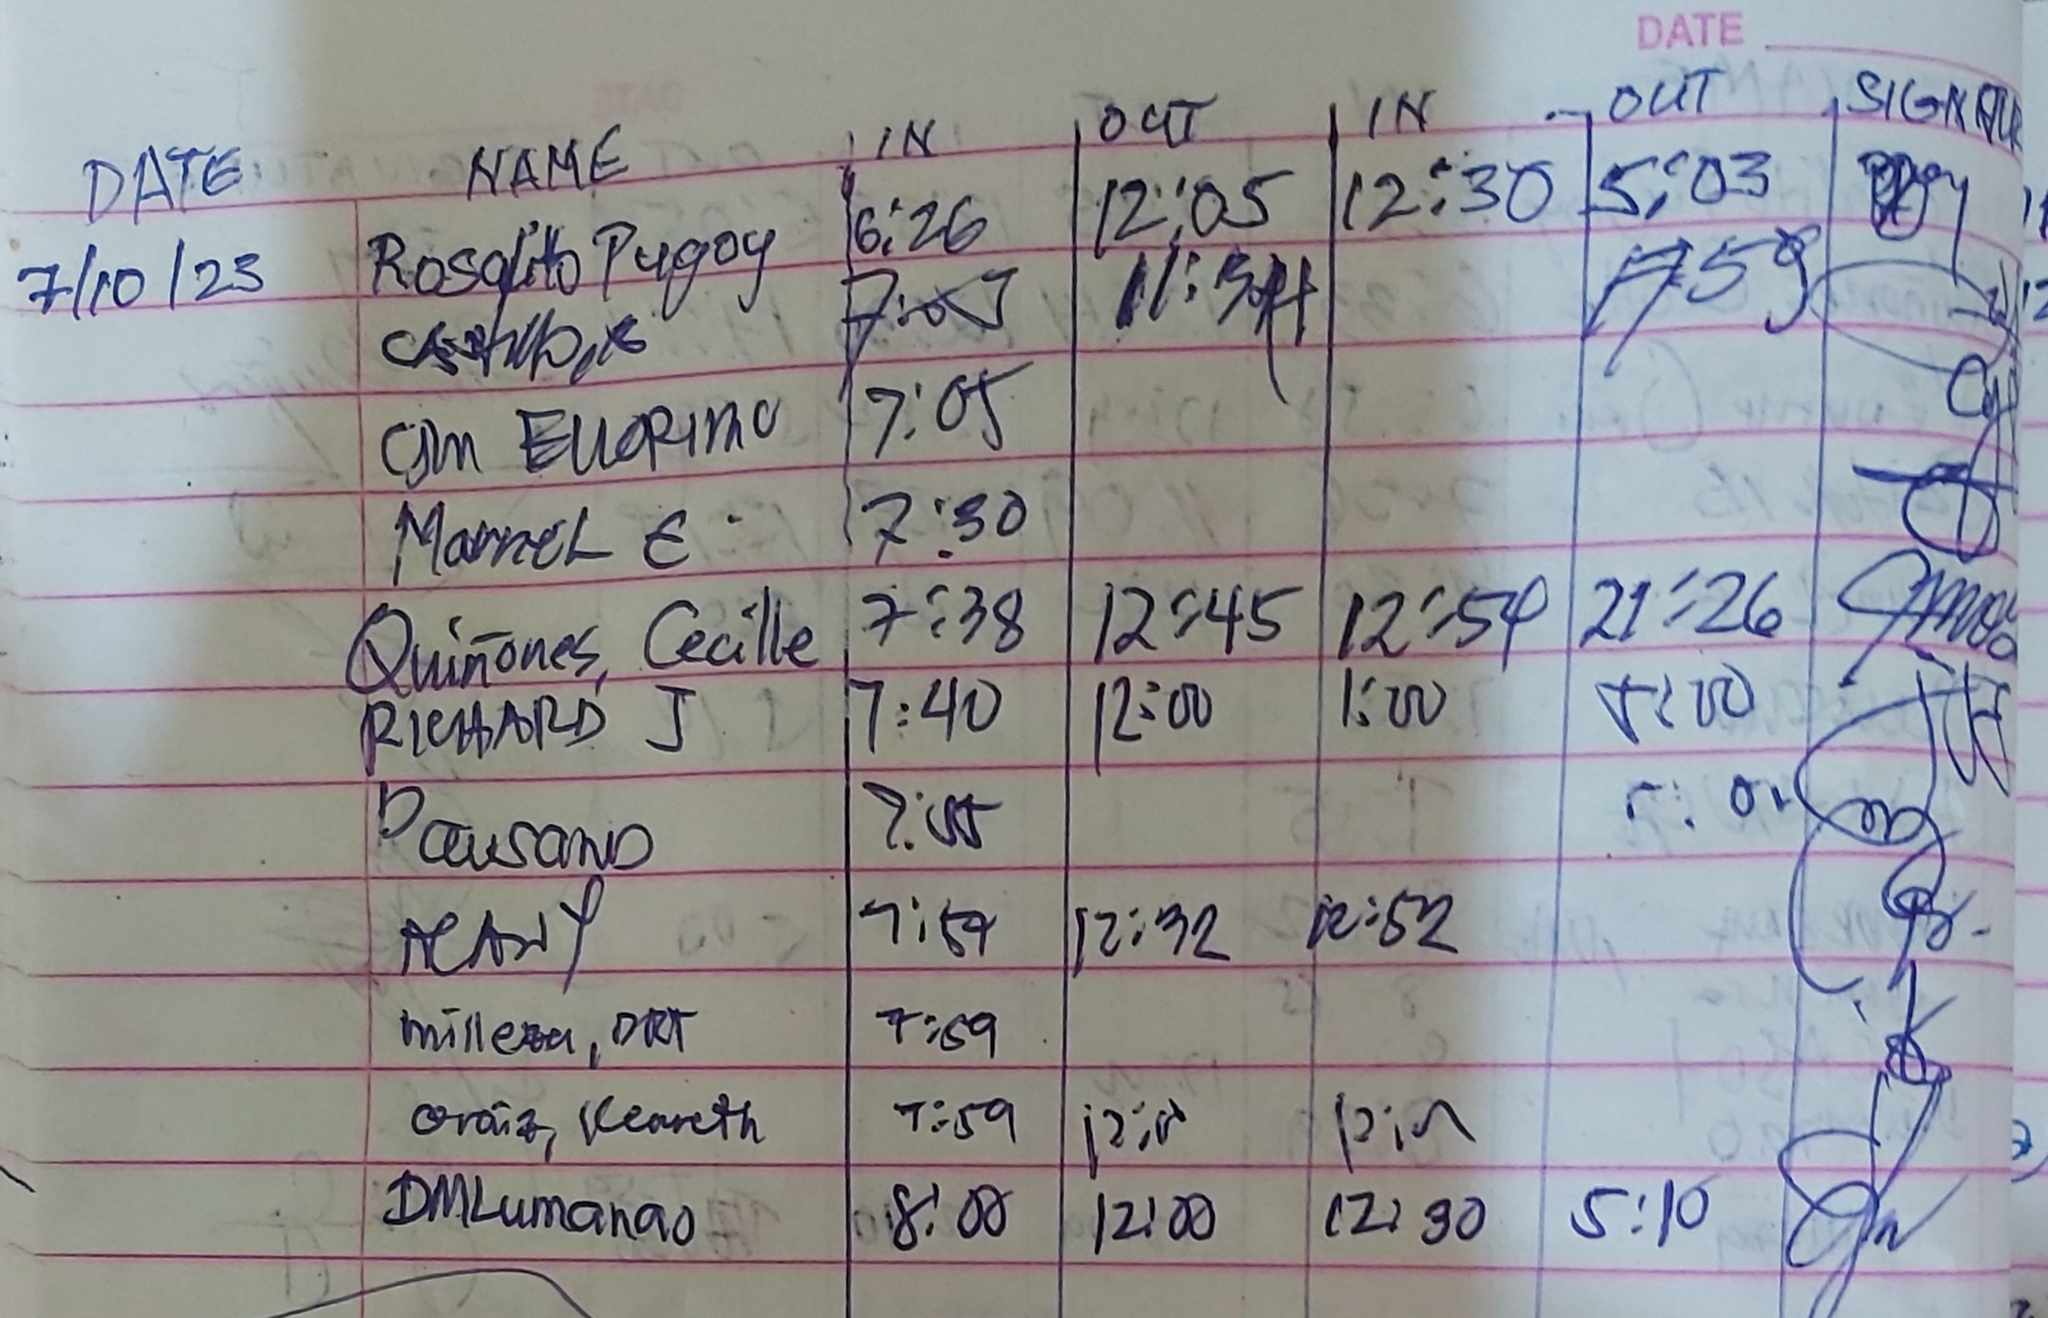 DATE
DATE NAME IN OUT IN OUT SIGNATUR
7/10/23 Rosalito Pugoy 6:26 12:05 12:30 5:03
7:05 11:34 1759
Gm Ellorimo 7:05
Marnel E. 7:30
Quiñones, Cecille 7:38 12:45 12:54 21:26
RICHARD J 7:40 12:00 1:00 5:00
7:55
7:59 12:32 12:52
7:59
Oraiz, Kenneth 7:59
DMLumanao 8:00 12:00 12:30 5:10